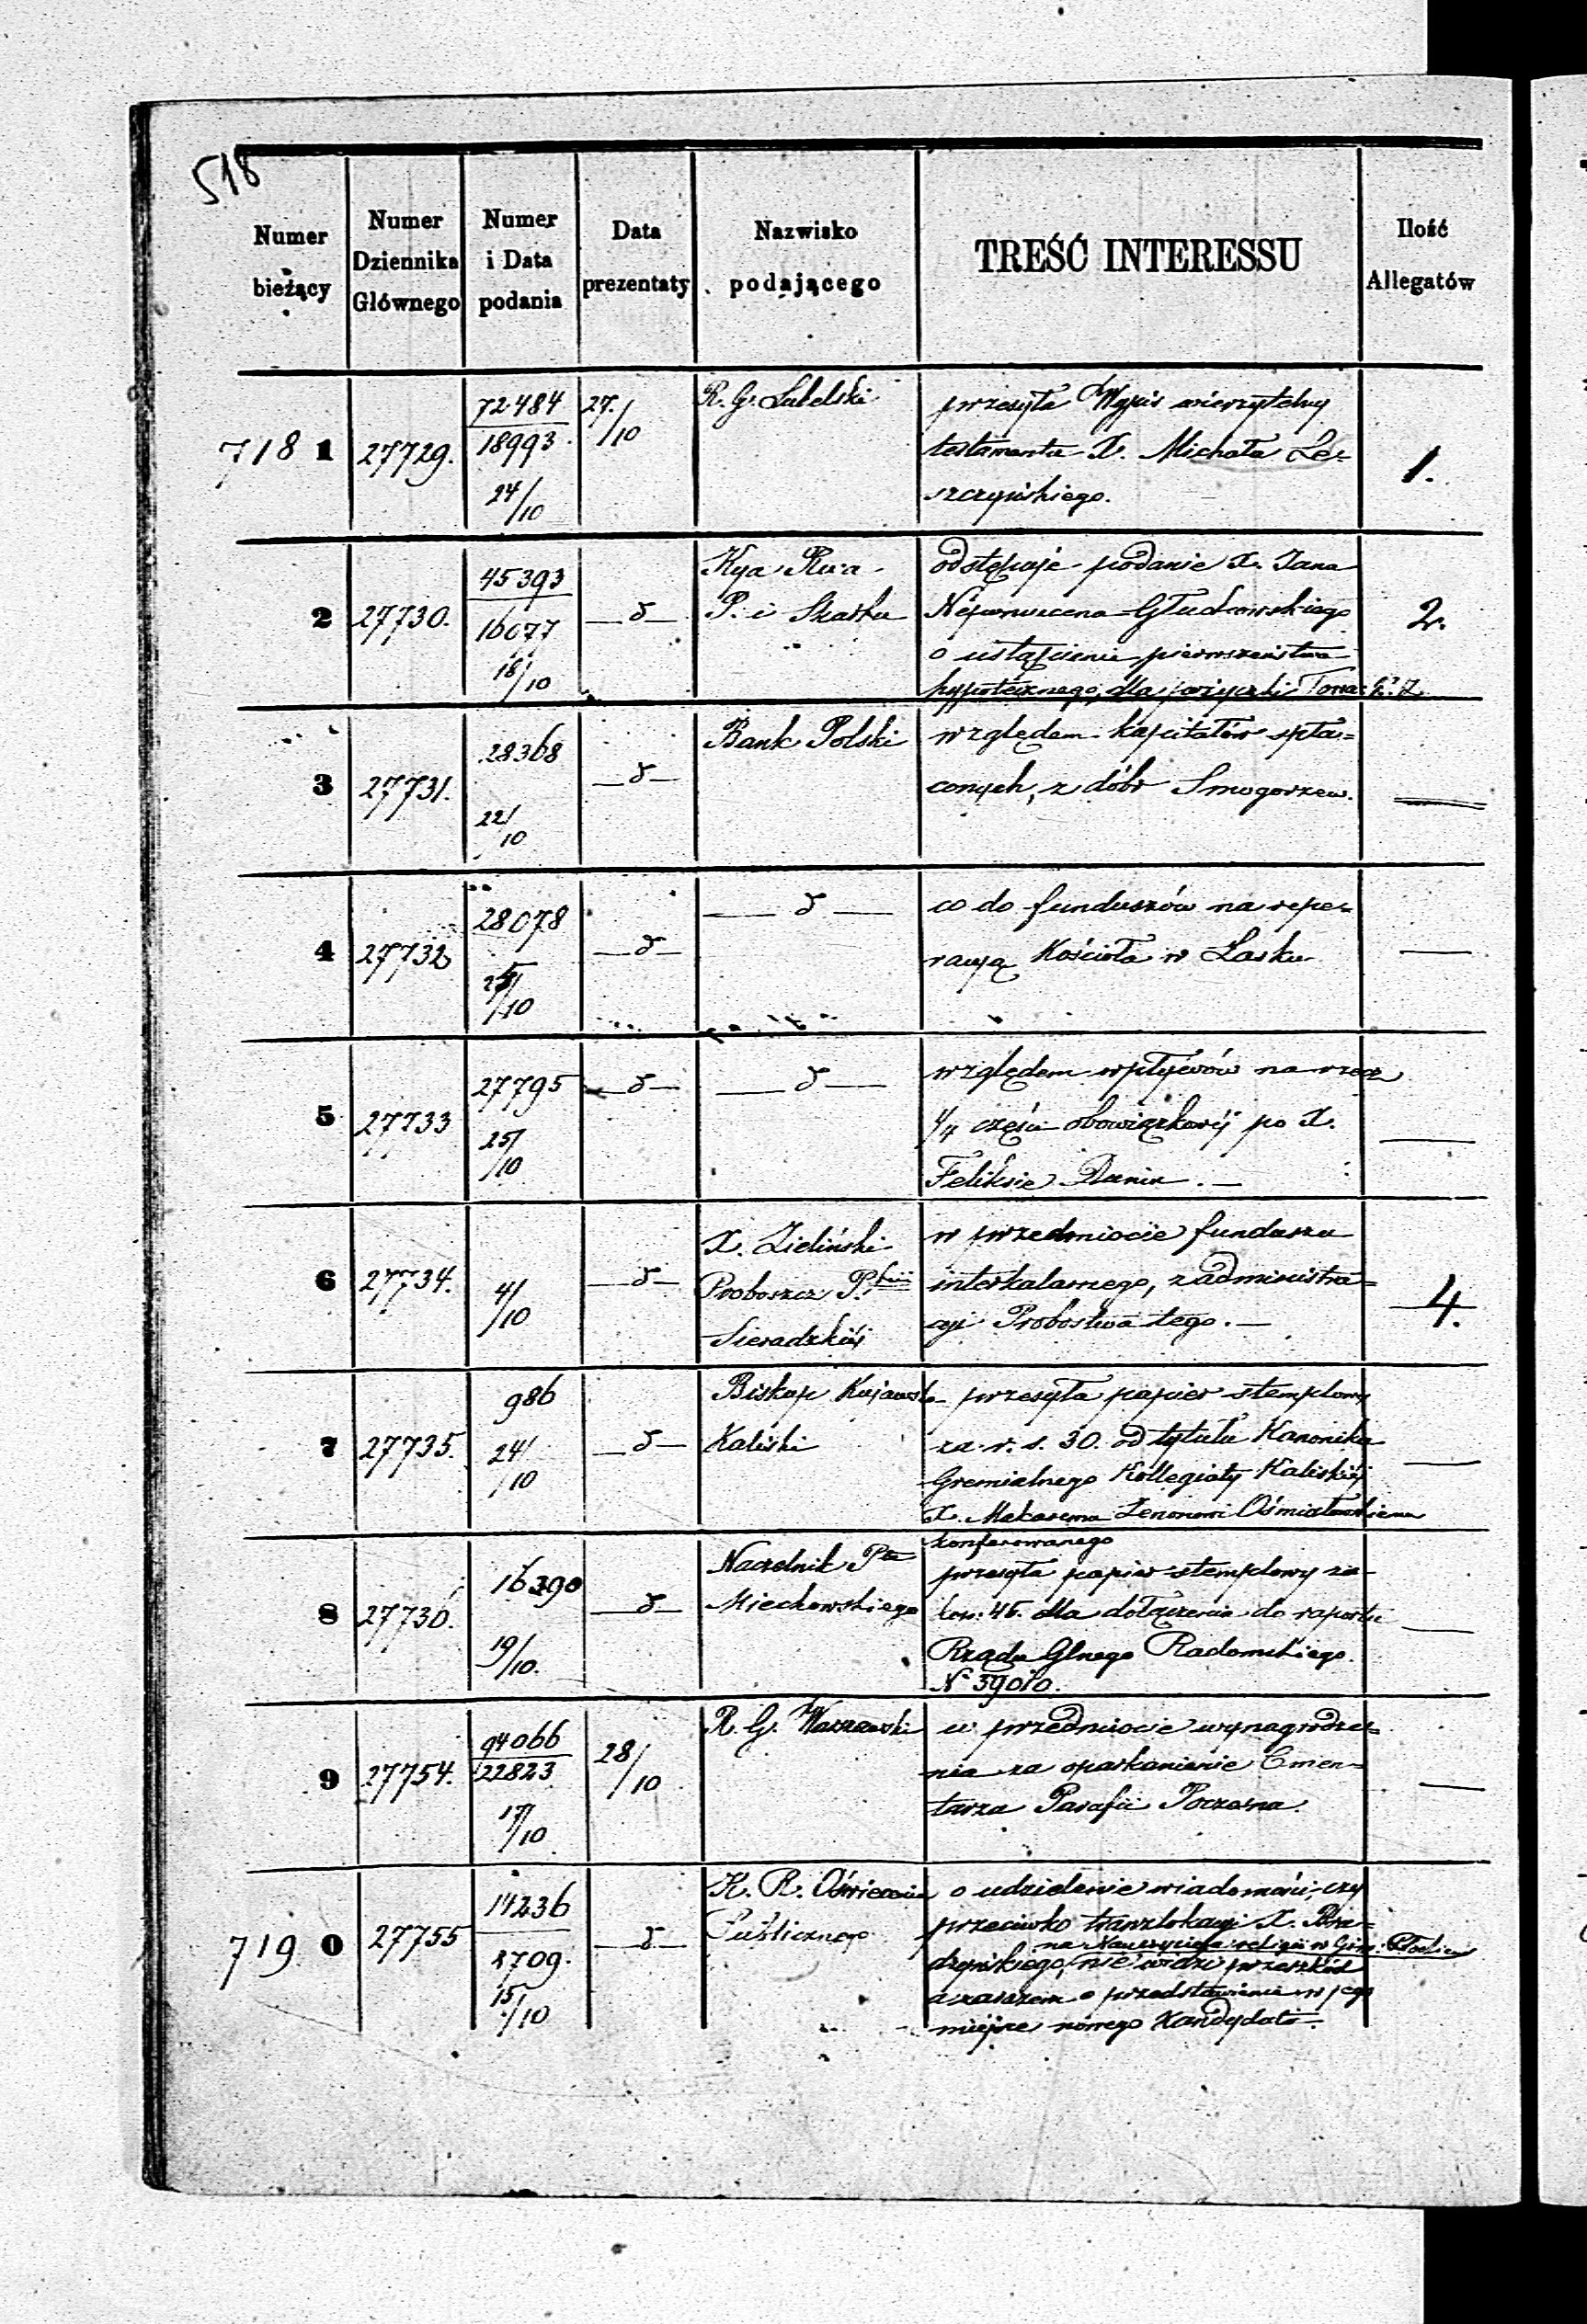 518
Numer bieżący
Numer Dziennika Głównego
Numer i Data podania
Data prezentaty
Nazwisko podającego
TREŚĆ INTERESSU
Ilość Allegatów
718 1 27729. 72484 27/10 R. G. Lubelski przesyła Wypis wierzytelny
18993 testamentu X. Michała Le= 1.
24/10 szczyńskiego.
2 27730. 45393 —d— Kya Rwa odstępuje podanie X. Jana
16077 P. i Skarbu Nepomucena Głuchowskiego 2.
18/10 o ustąpienie pierwszeństwa
hypotecznego, dla pożyczki Towa:
3 27731. 28368 —d— Bank Polski względem kapitałów spła=
22/10 conych, z dóbr Smogorzew.
4 27732 28078 —d— —d— co do funduszów na repe=
25/10 racyą Kościoła w Łasku
5 27733 27795 —d— —d— względem wpływów na rzecz
25/10 1/4 części obowiązkowéj po X.
Feliksie —
6 27734. 4/10 —d— X. Zieliński w przedmiocie funduszu
Proboszcz P. interkalarnego, z administra= 4.
Sieradzkiéj cyi Probostwa tego. —
7 27735. 986 —d— Biskup Kujawsko przesyła papier stemplowy
24/10 Kaliski za r. s. 30. od tytułu Kanonika
Gremialnego Kollegiaty Kaliskiéj
X. Zenonowi
konferowanego
8 27736. 16390 —d— Naczelnik Ptu przesyła papier stemplowy za
Miechowskiego kop: 45. dla dołączenia do raportu
19/10. Rządu Glnego Radomskiego.
N° 39010.
9 27754. 94066 28/10 R. G. Warszawski w przedmiocie wynagrodze=
22823 nia za oparkanienie Cmen=
17/10 tarza Parafii Poczesna.
719 0 27755 14236 —d— K. R. Oświecenia o udzielenie wiadomości, czy
Publicznego przeciwko translokacyi X.
na Nauczyciela religii w Gim:
2709. nie widzi przeszkód
15/10 a zarazem o przedstawienie w jego
miejsce nowego Kandydata.